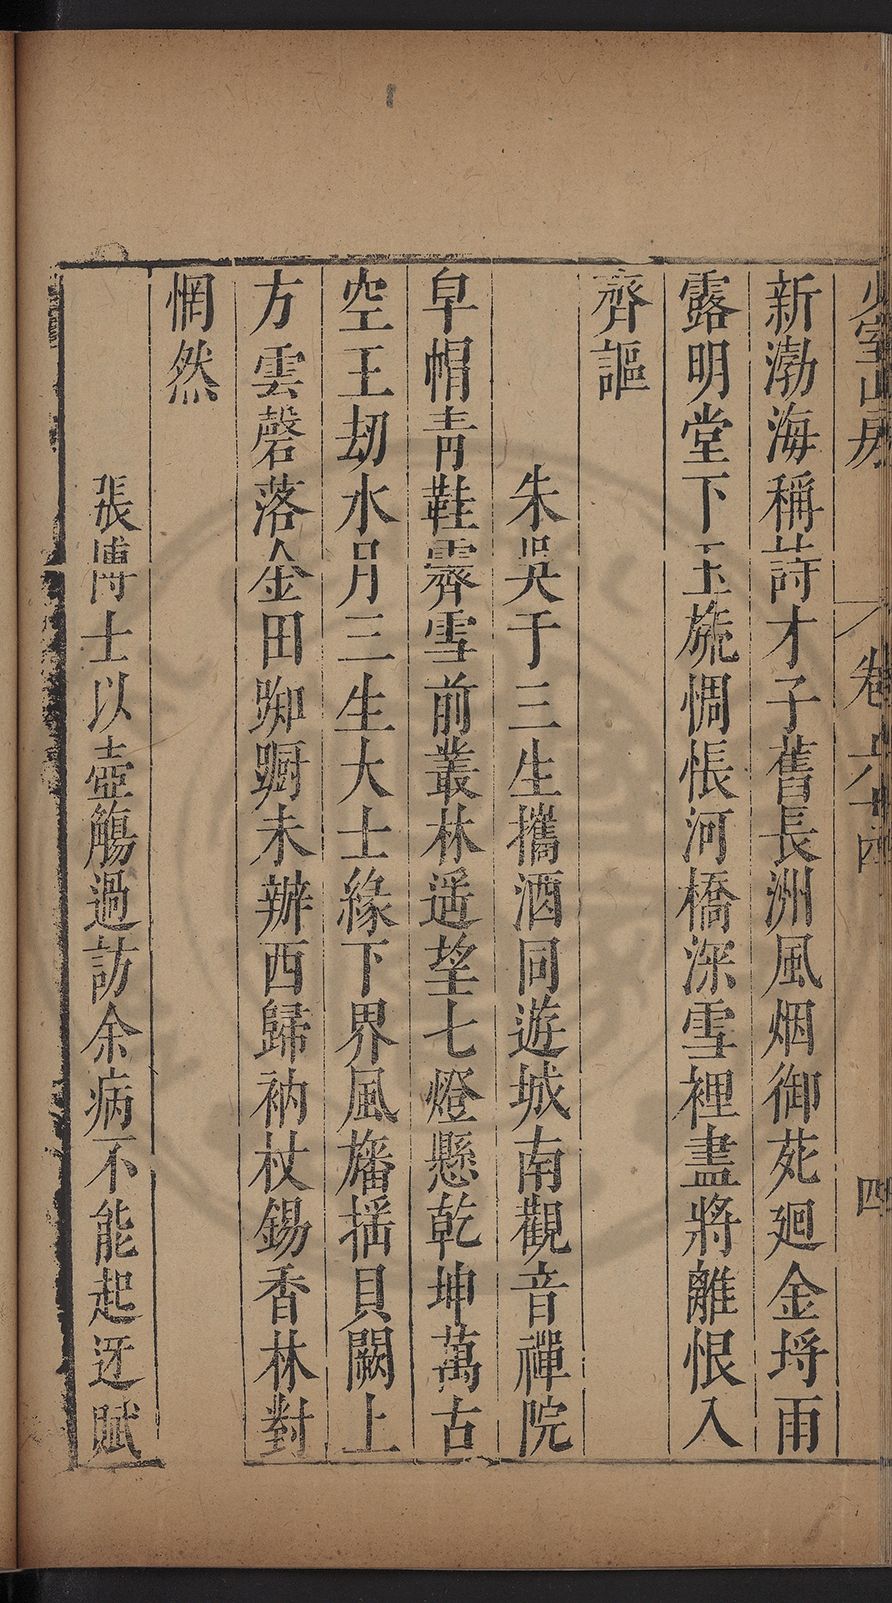 少室山房 卷六十四 四
新渤海稱詩才子舊長洲風烟御苑廻金埒雨
露明堂下玉旒惆悵河橋深雪裡盡將離恨入
齊謳
朱吳于三生攜酒同遊城南觀音禪院
皁帽青鞋霽雪前叢林遥望七燈懸乾坤萬古
空王刼水月三生大士緣下界風旛揺貝闕上
方雲磬落金田踟蹰未辦西歸衲杖錫香林對
惘然
張博士以壺觴過訪余病不能起迓賦